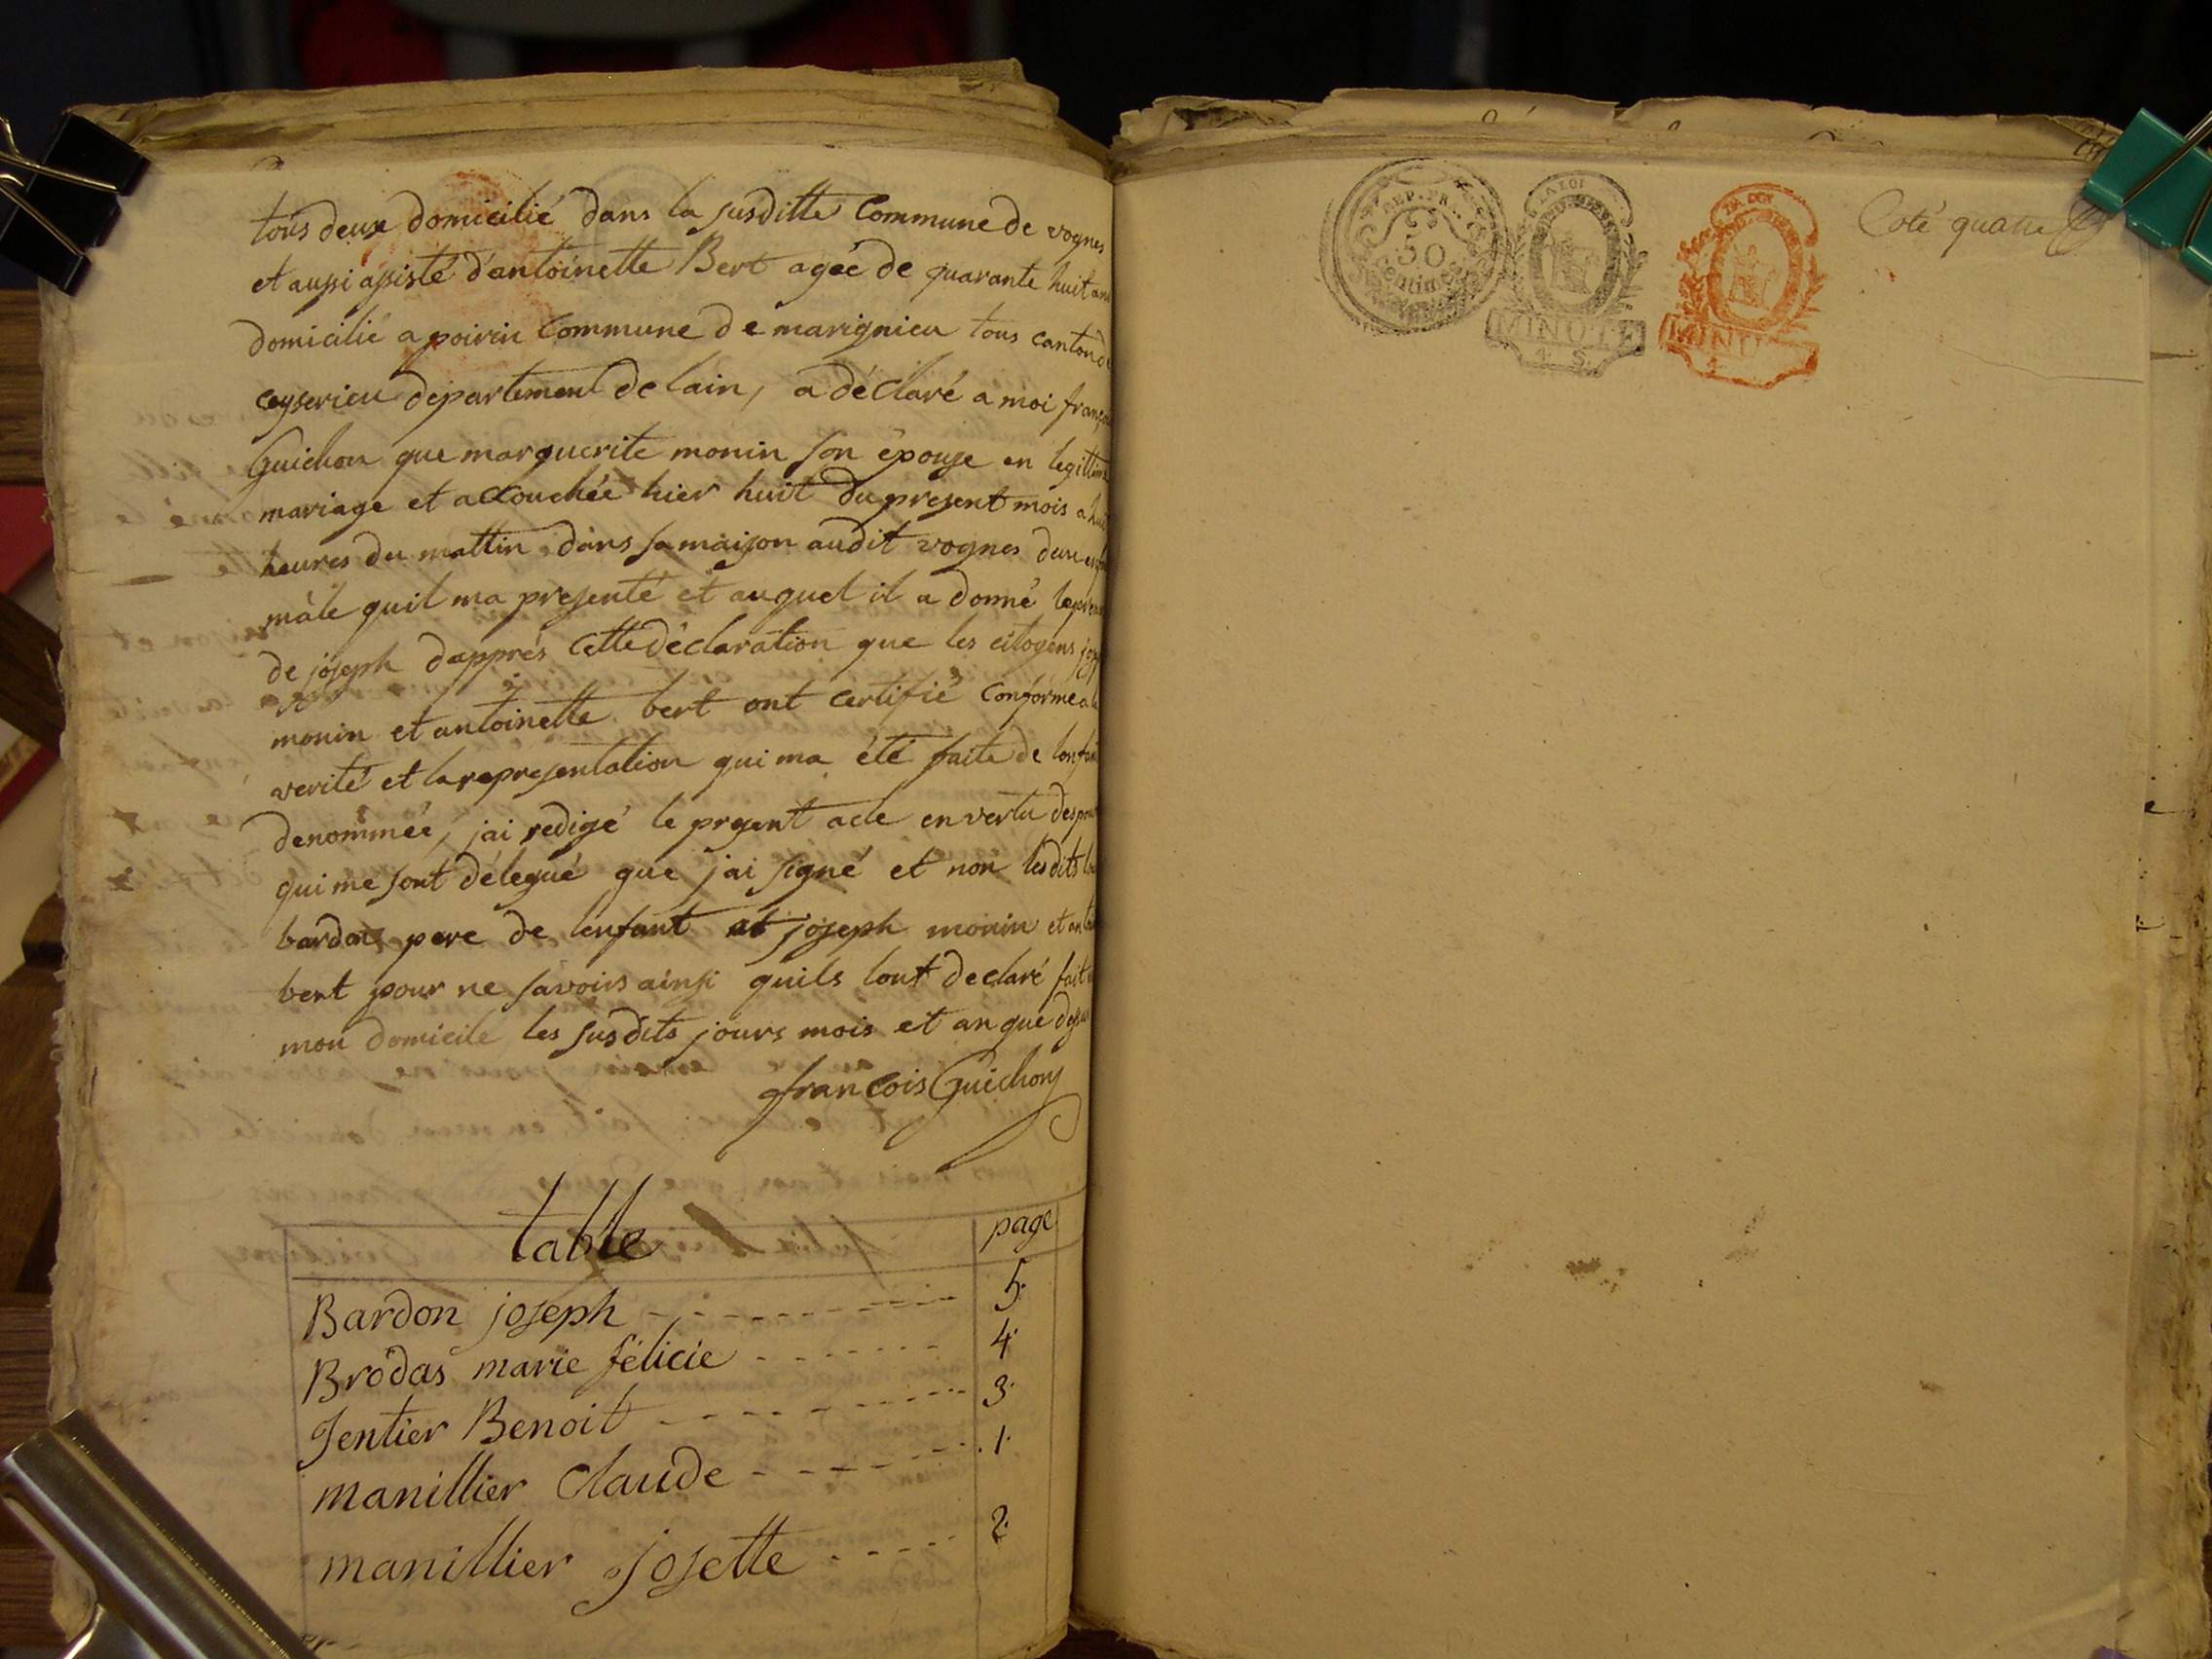 tous deux domicilié dans la susditte Commune de vognes
et aussi assisté d'antoinette Bert agée de quarante huit ans
domicilié a poirin Commune de marignieu tous canton de
ceyserieu département de lain, a déclaré a moi françois
Guichon que marguerite monin son épouse en legittime
mariage et accouchée hier huit du present mois a huit
heures du mattin dans sa maison audit vognes dun enfant
mâle quil ma presenté et auquel il a donné le prenom
de joseph dapprés cette déclaration que les citoyens joseph
monin et antoinette bert ont certifié conforme a la
verité et la representation qui ma été faite de lenfant
denommée, jai redigé le present acte en vertu des pouvoirs
qui me sont délegué que jai signé et non lesdits
bardon pere de lenfant et joseph monin et
bert pour ne savoirs ainsi quils lont declaré fait
mon domicile les susdits jours mois et an que dessus
francois Guichon
table page
Bardon joseph 5.
Brodas marie félicie 4.
Jentier Benoit 3.
manillier Claude .1.
manillier josette 2.
REP. FR.
50
centimes
LA LOI
MINUTE
4. S.
LA LOI
MINU
4
Coté quatre